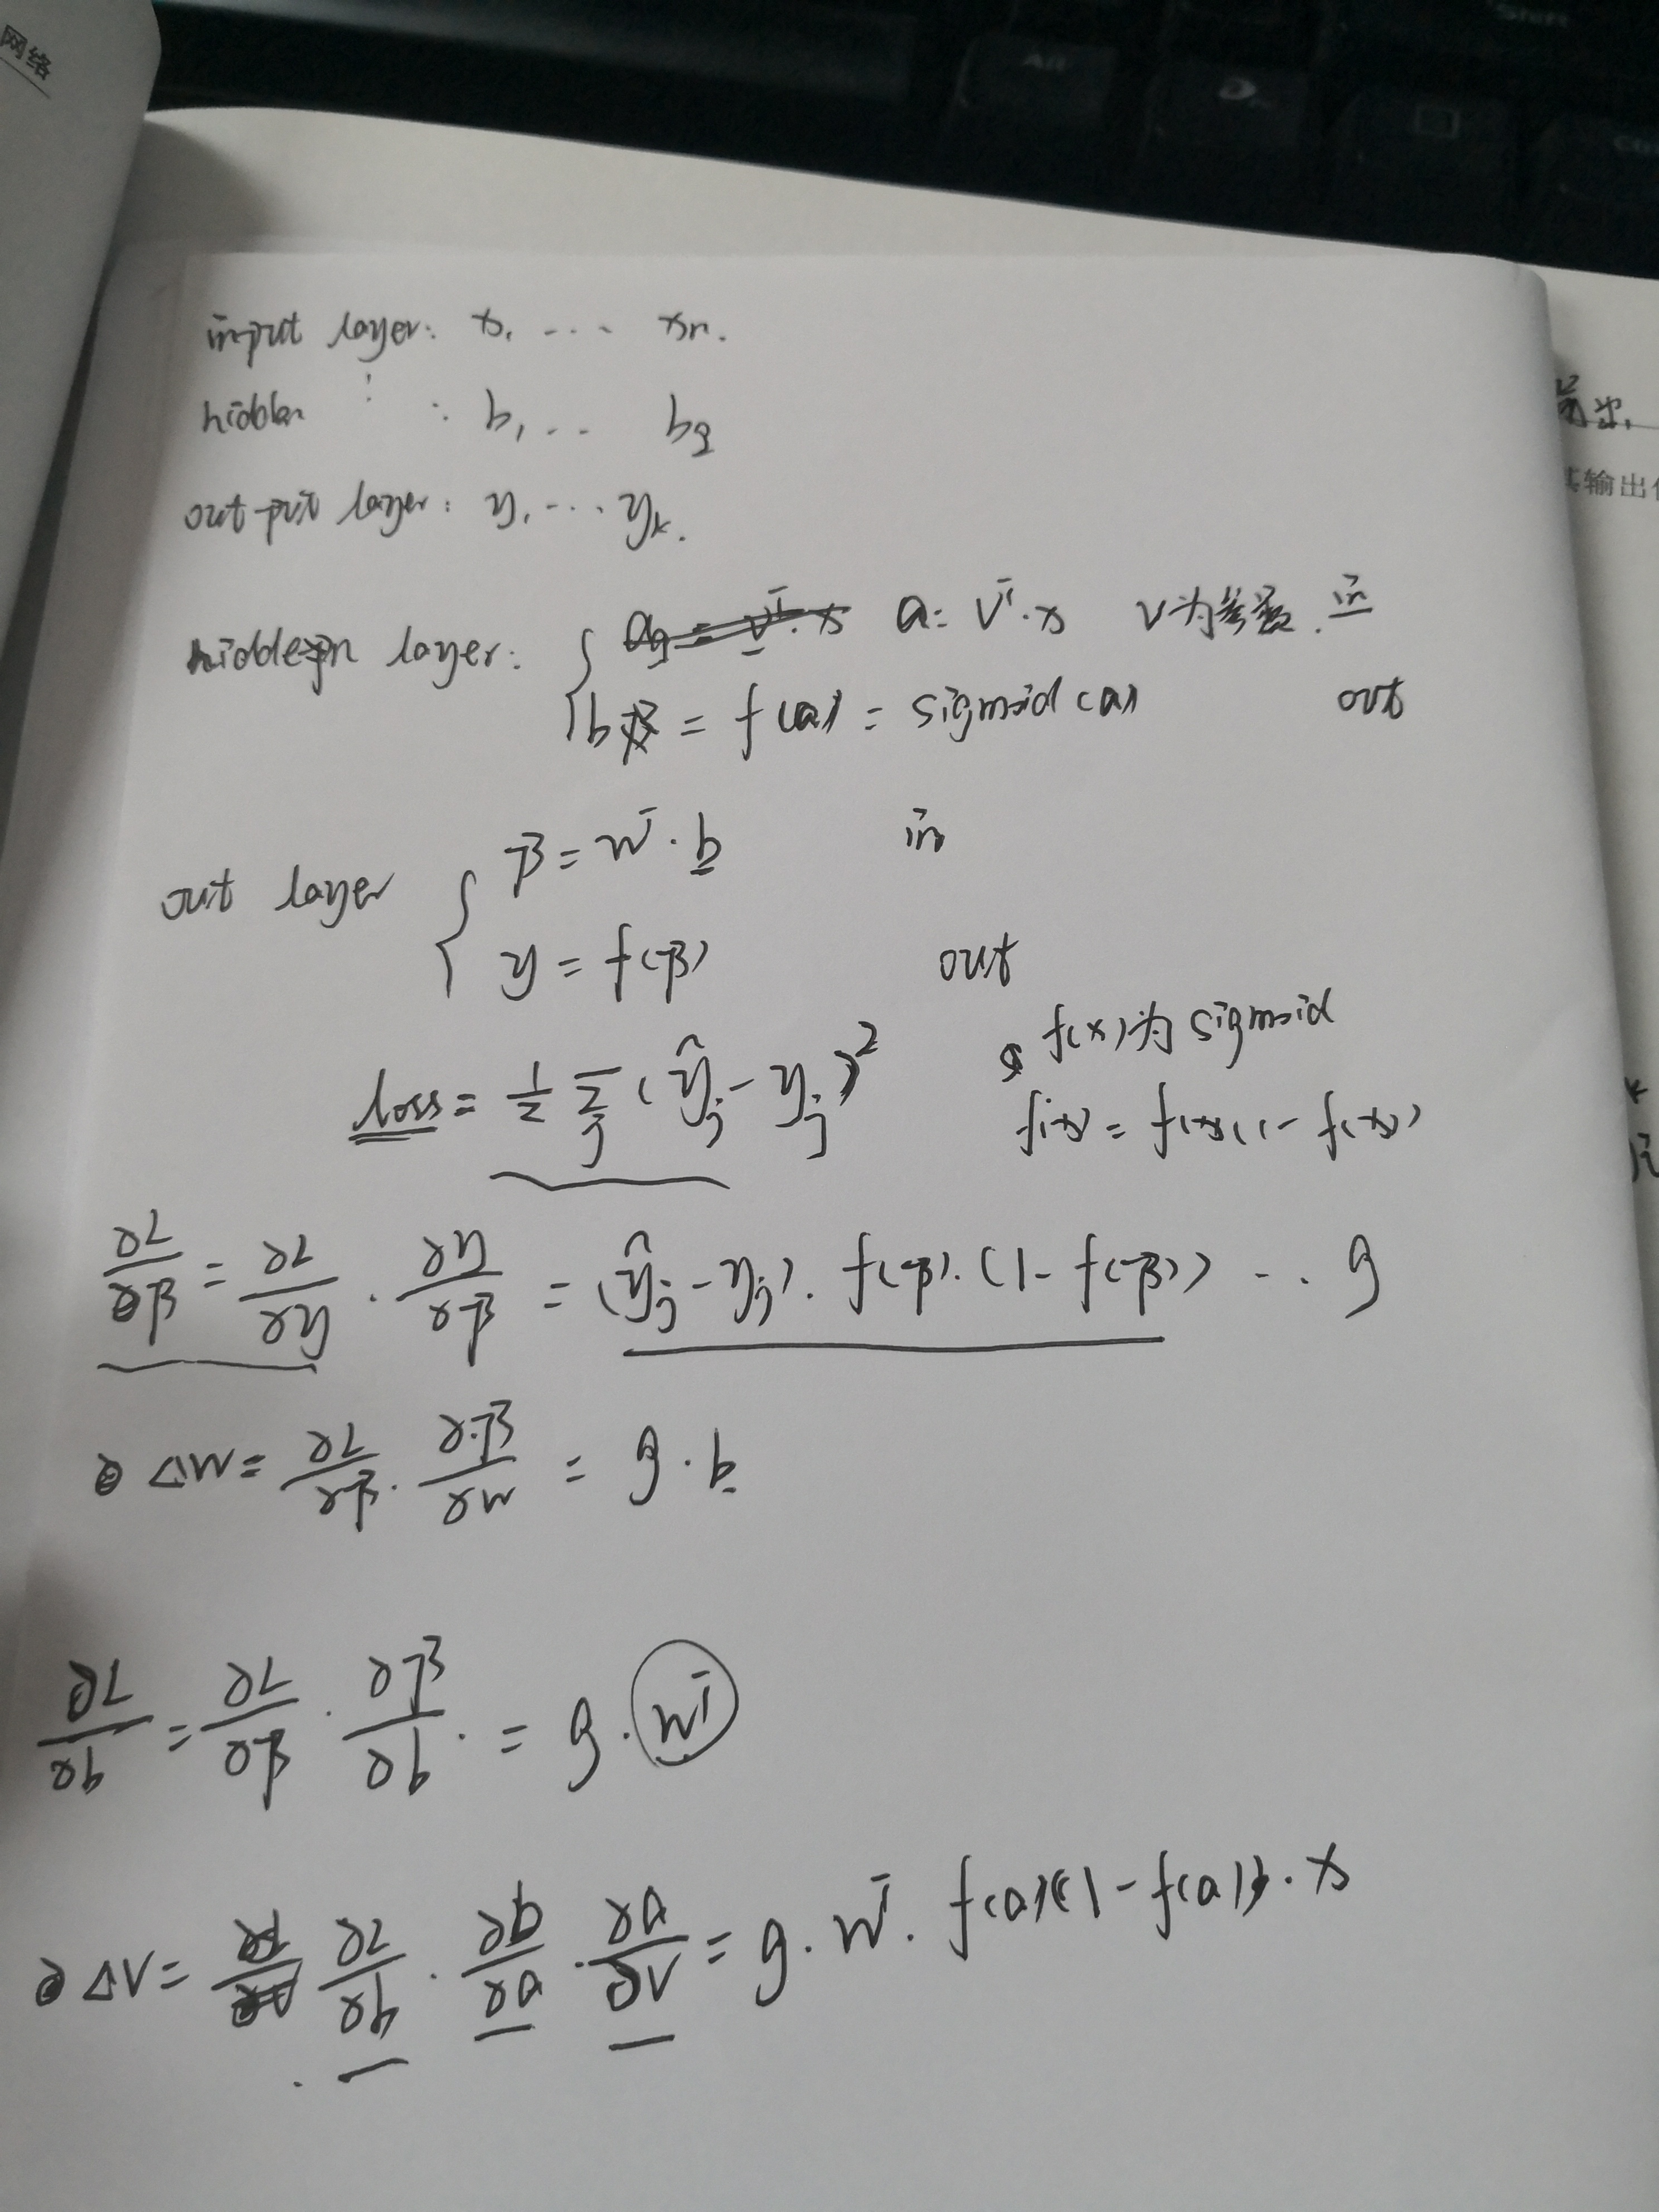 网络
Shift
Alt
input layer: x₁ ... xn.
hidden : b₁ ... bq
out put layer: y₁ ... yk.
输出,
其输出
hidden layer: { a = Vᵀ·x V为参数. in
b = f(a) = sigmoid(a) out
out layer { β = wᵀ·b in
y = f(β) out
loss = 1/2 Σj (ŷj - yj)² f(x)为sigmoid
f(x) = f(x)(1 - f(x))
∂L/∂β = ∂L/∂y · ∂y/∂β = (ŷj - yj)· f(β)·(1 - f(β)) ... g
ΔW = ∂L/∂β · ∂β/∂w = g·b
∂L/∂b = ∂L/∂β · ∂β/∂b · = g·wᵀ
ΔV = ∂L/∂b · ∂b/∂a · ∂a/∂V = g·wᵀ· f(a)(1 - f(a))·x